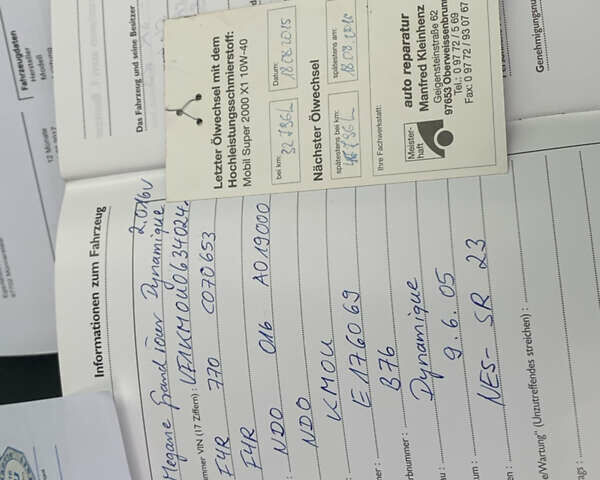 Fahrzeugdaten
Hersteller
Modell
12 Monate
Das Fahrzeug und seine Besitzer
Letzter Ölwechsel mit dem
Hochleistungsschmierstoff:
Mobil Super 2000 X1 10W-40
bei km: 32796 L
Datum: 18.08.2015
Nächster Ölwechsel
spätestens bei km:
spätestens am: 18.08.2016
Ihre Fachwerkstatt:
Meister-
haft
auto reparatur
Manfred Kleinhenz
Geigensteinstraße 62
97653 Oberweissenbrunn
Tel.: 0 97 72 / 5 69
Fax: 0 97 72 / 93 07 67
Informationen zum Fahrzeug
2.0 16V
Megane Grandtour Dynamique
VIN (17 Ziffern) : VF1KM0U0634024
F4R 770 C070653
F4R
NDO 016 A019000
NDO
KM0U
E176069
B76
Dynamique
9.6.05
NES- SR 23
(Unzutreffendes streichen) :